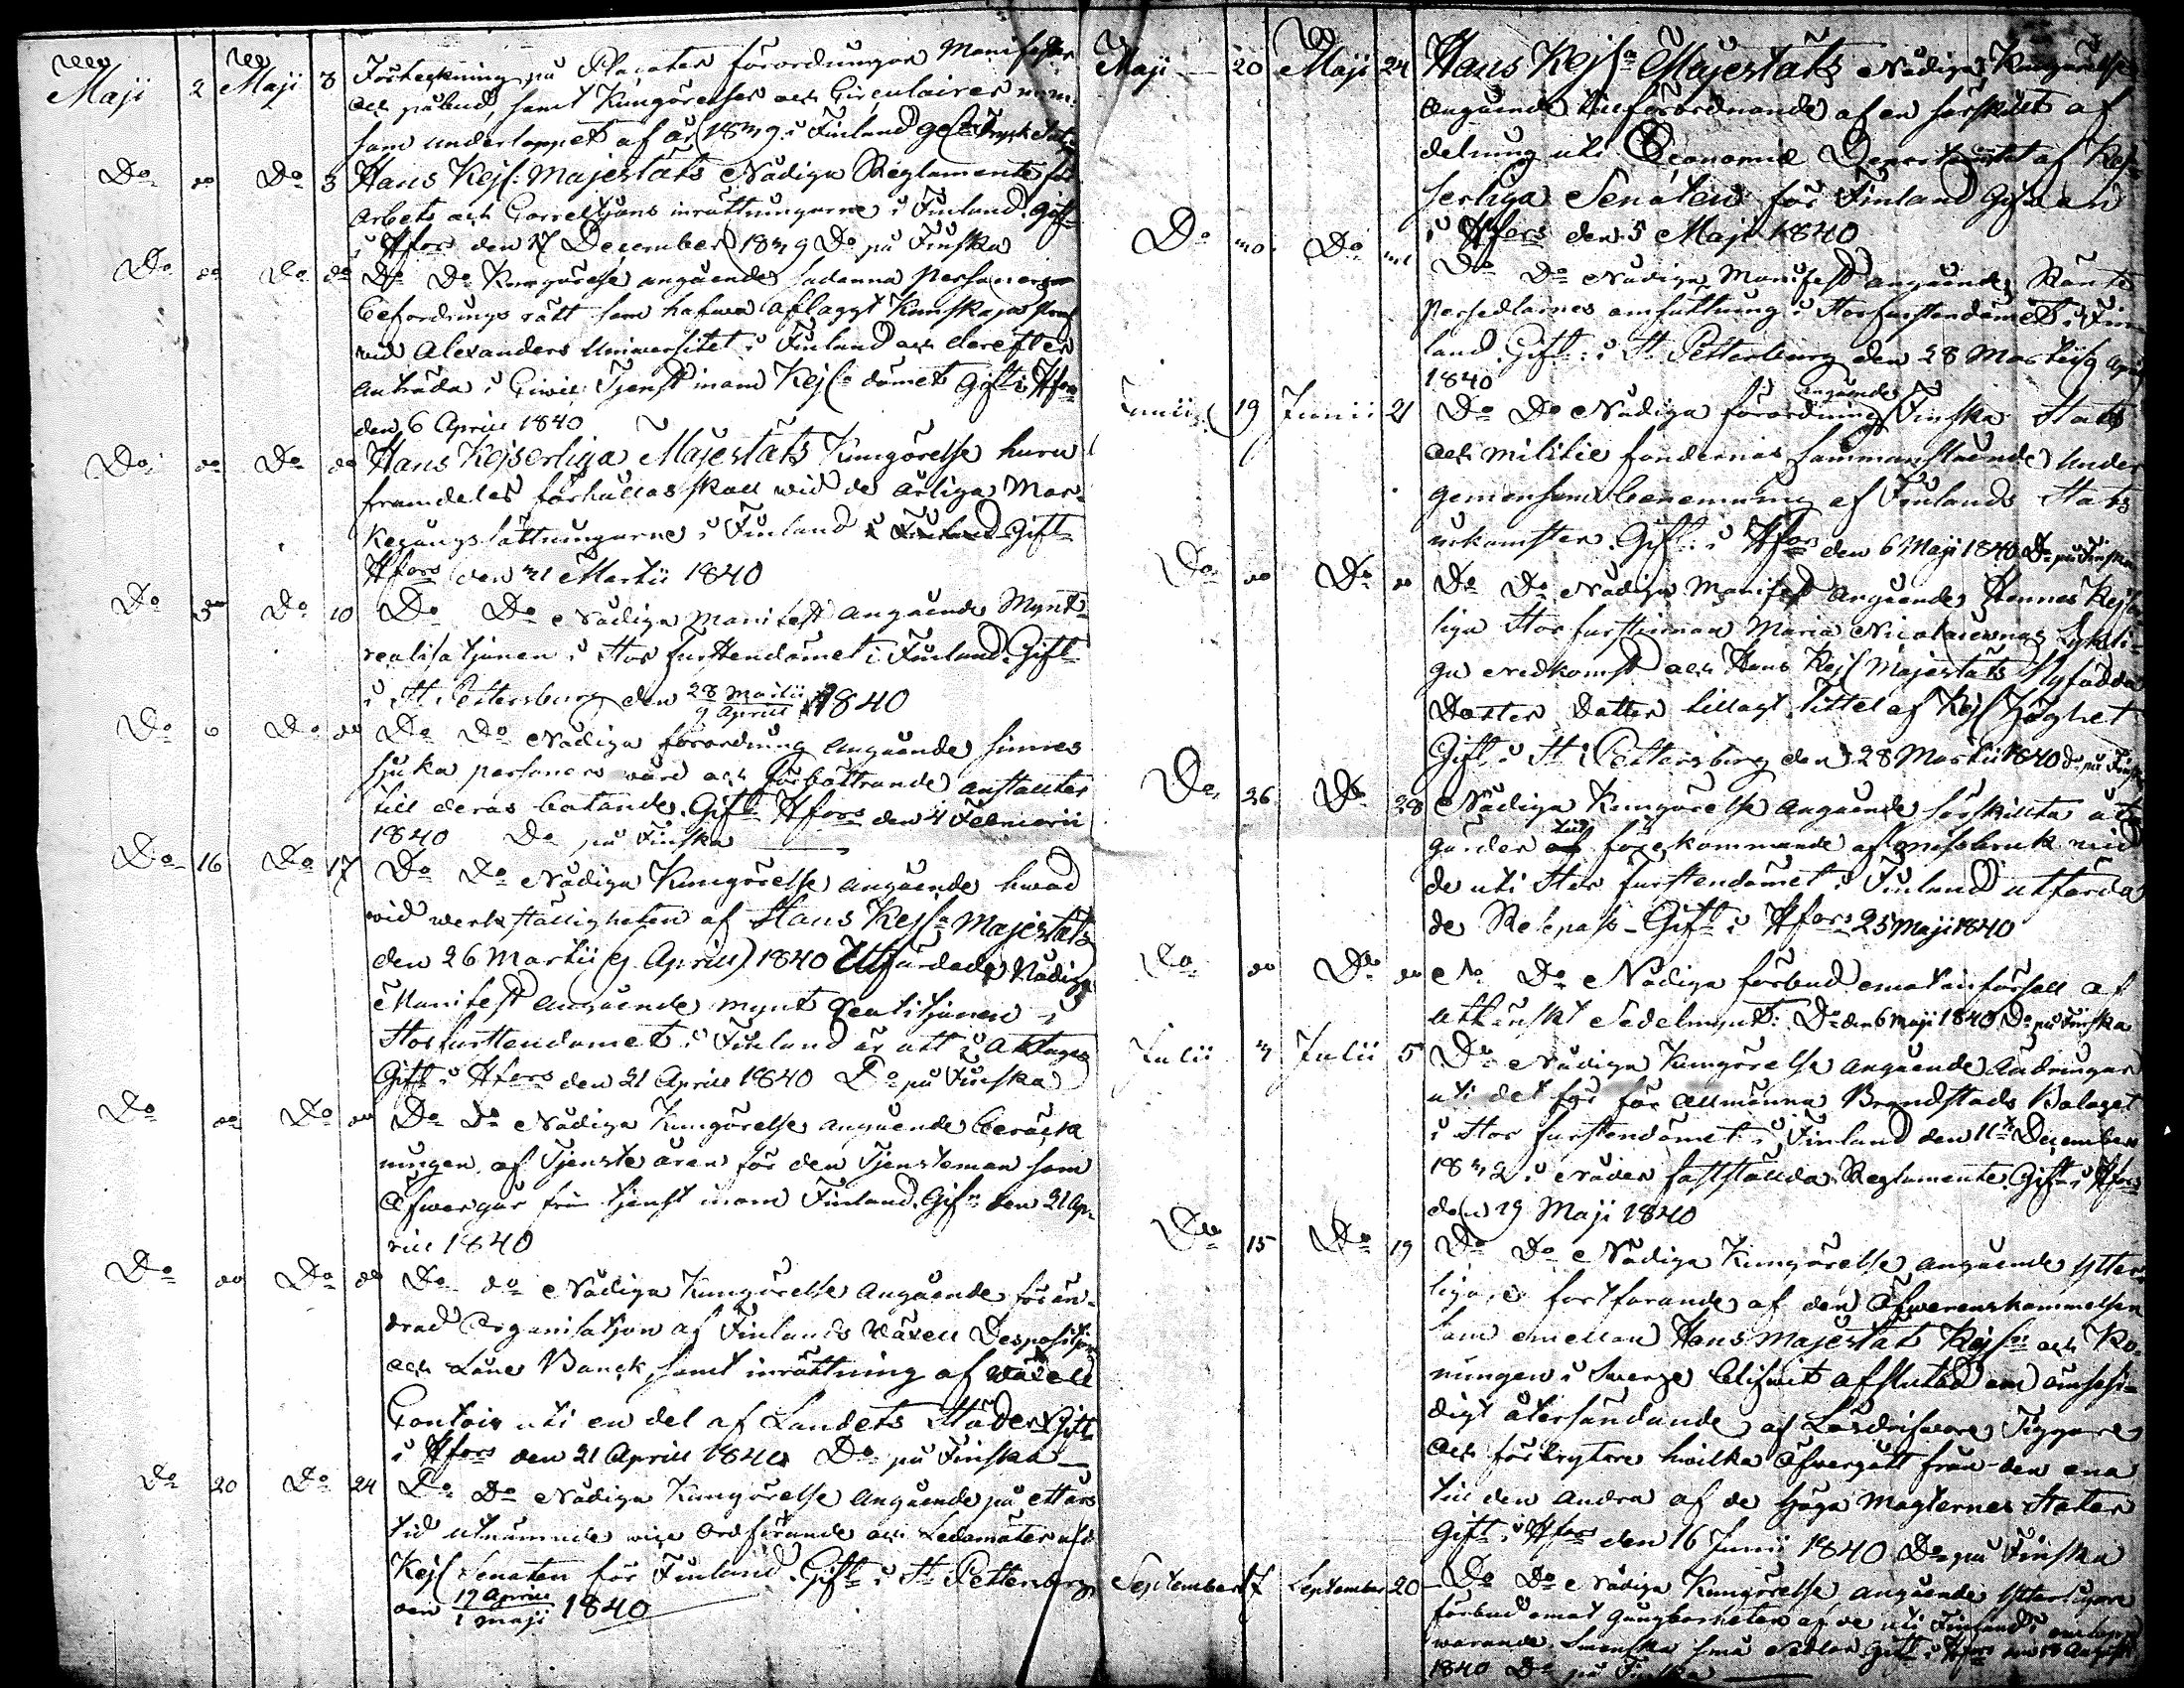 Maji 2 Maji 3 Förteckning på Placater förordningar Manifester
och påbud, samt Kungörelser och Circulairer m.m.
som underloppet af år 1839 i Finland
Do do Do 3 Hans Kejs: Majestäts Nådiga Reglemente för
arbets och Correktjons inrättningarne i Finland. Gift
i Hfors den 17 December 1839 Do på Finska
Do do Do do Do Do Kungörelse angående sådanna personers
befordrings rätt som hafwa aflaggt Kunskaps prof
wid Alexanders Universitet i Finland och derefter
anträda i Civil Tjenst inom Kejs. dömet Gift i Hfors
den 6 Aprill 1840
Do do Do do Hans Kejserliga Majestäts Kungörelse huru
framdeles förhållas skall wid de årliga Mar-
kegångs sättningarne i Finland i Finland Gift
Hfors den 31 Martii 1840
Do 3 Do 10 Do Do Nådiga Manifest angående Mynt-
realisatjonen i Stor furstendömet i Finland. Gift
i St. Pettersburg den 28 Martii / 9 Aprill 1840
Do 6 Do do Do Do Nådiga förordning angående sinnes
sjuka personers vård och förbättrande anstallter
till deras botande. Gift Hfors den 4 Februarii
1840 Do på Finska
Do 16 Do 17 Do Do Nådiga Kungörelse angående hwad
wid werkställigheten af Hans Kejs. Majestäts
den 26 Martii (9 Aprill) 1840 Utfärdade Nådiga
Manifest angående mynt Realitjonen i
Storfurstendömet i Finland är att i akttaga
Gift i Hfors den 21 Aprill 1840 Do på Finska
Do do Do do Do Do Nådiga Kungörelse angående beräck
ningen af Tjenste åren för den Tjensteman som
öfwergår från tjenst inom Finland. Gift den 21 Ap-
rill 1840
Do do Do do Do do Nådiga Kungörelse angående förän-
drad Organisatjon af Finlands Wäxell Depositjons
och Låne Banck, samt inrättning af Wäxell
Contoir uti en del af Landets Städer. Gift
i Hfors den 21 Aprill 1840 Do på Finska
Do 20 Do 24 Do Do Nådiga Kungörelse angående på ett års
tid utnämnde wice Ordförande och Ledamöter uti
Kejs Senaten för Finland. Gift i St. Pettersburg
den 19 Aprill / 1 maji 1840
Maji 20 Maji 24 Hans Kejs. Majestäts Nådiga Kungörelse
angående tillförordnande af en särskillt af
delning uti Economie Departementet af Kej-
serliga Senaten för Finland Gifwen
i Hfors den 5 Maji 1840
Do Do Do Do Nådiga Manifest angående Ränte
Persedlarnes omsättning i Storfurstendömet i Fin
land. Gift i St. Petterburg den 28 Martii/9 April
1840
Junii 19 Junii 21 Do Do Nådiga förordning angående Finska Stats
och militie fondernas sammanslående under
gemensam benemning af Finlands Stats
inkomster. Gift i Hfors den 6 Maji 1840 Do på Finska
Do do Do do Do Do Nådiga Manifest angående Hennes Kejser
liga Stor furstinnan Maria Nicolaiewnas Lykli-
ga nedkomst och Hans Kejs Majestäts Nyfödda
Dotter Dotter tillagt Tittel af Kejs Höghet
Gift i St. Pettersburg den 28 Martii 1840 do på Finska
Do 26 Do 28 Nådiga Kungörelse angående särskillta åt
gärder till förekommande af missbruk wid
de uti Stor furstendömet i Finland utfärda
de Respass. Gift i Hfors 25 Maji 1840
Do do Do do Do Do Nådiga förbud emot införsell af
uthländskt Sedelmynt. Do den 6 Maji 1840 Do på Finska
Julii 3 Julii 5 Do Nådiga Kungörelse angående ändringar
uti det för för allmänna Brandstods Bolaget
i Stor furstendömet i Finland den 11 December
1832 i Nåder fastställda Reglemente. Gift i Hfors
den 29 Maji 1840
Do 15 Do 19 Do Do Nådiga Kungörelse angående ytter-
ligare fortfarande af den Öfwerenskommelsen
som emellan Hans Majestät Kejs. och Ko-
nungen i Swerge blifwit afslutad om ömsesi-
digt återsändande af Lösdrifware, Tiggare
och förbrytare hwilka öfwergått från den ena
till den andra af de höga magternes Stater
Gift i Hfors den 16 Junii 1840 Do på Finska
September 17 September 20 Do Do Nådiga Kungörelse angående ytterligare
förbud emot gångbarheten af de uti Finland omlopp
warande Swenska små Sedlar. Gift i Hfors den 18 Augusti
1840 Do på Finska